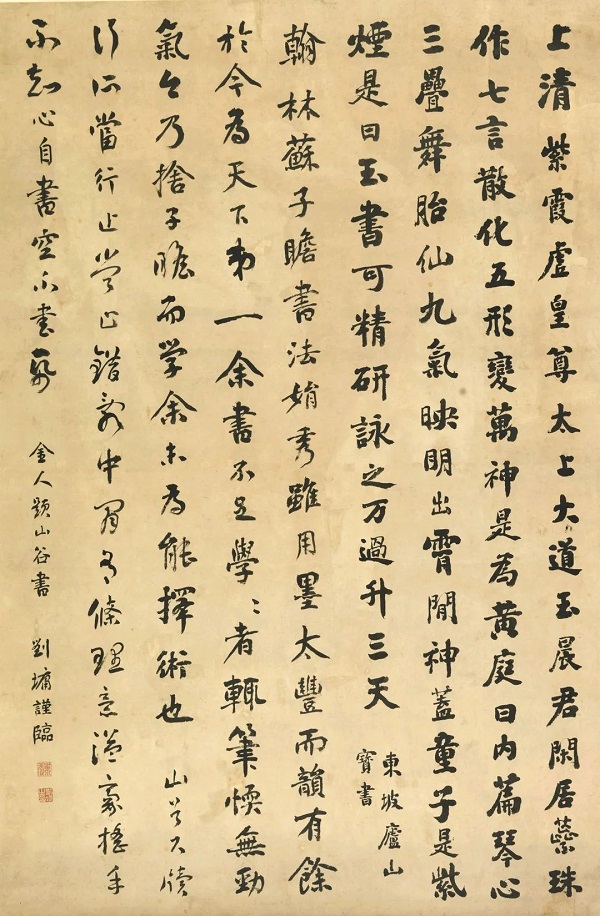 上清紫霞虛皇尊太上大道玉晨君閑居蘂珠
作七言散化五形變萬神是為黃庭曰內篇琴心
三疊舞胎仙九氣映明出霄間神蓋童子是紫
煙是曰玉書可精研詠之万過升三天
東坡廬山
寶書
翰林蘇子瞻書法娟秀雖用墨太豐而韻有餘
於今為天下第一余書不足學〻者輒筆愞無勁
氣今乃捨子瞻而學余未為能擇術也 山谷尺牘
行所當行止當止錯亂中間有條理意溢豪搖手
不知心自書空不書紙 金人題山谷書 劉墉謹臨